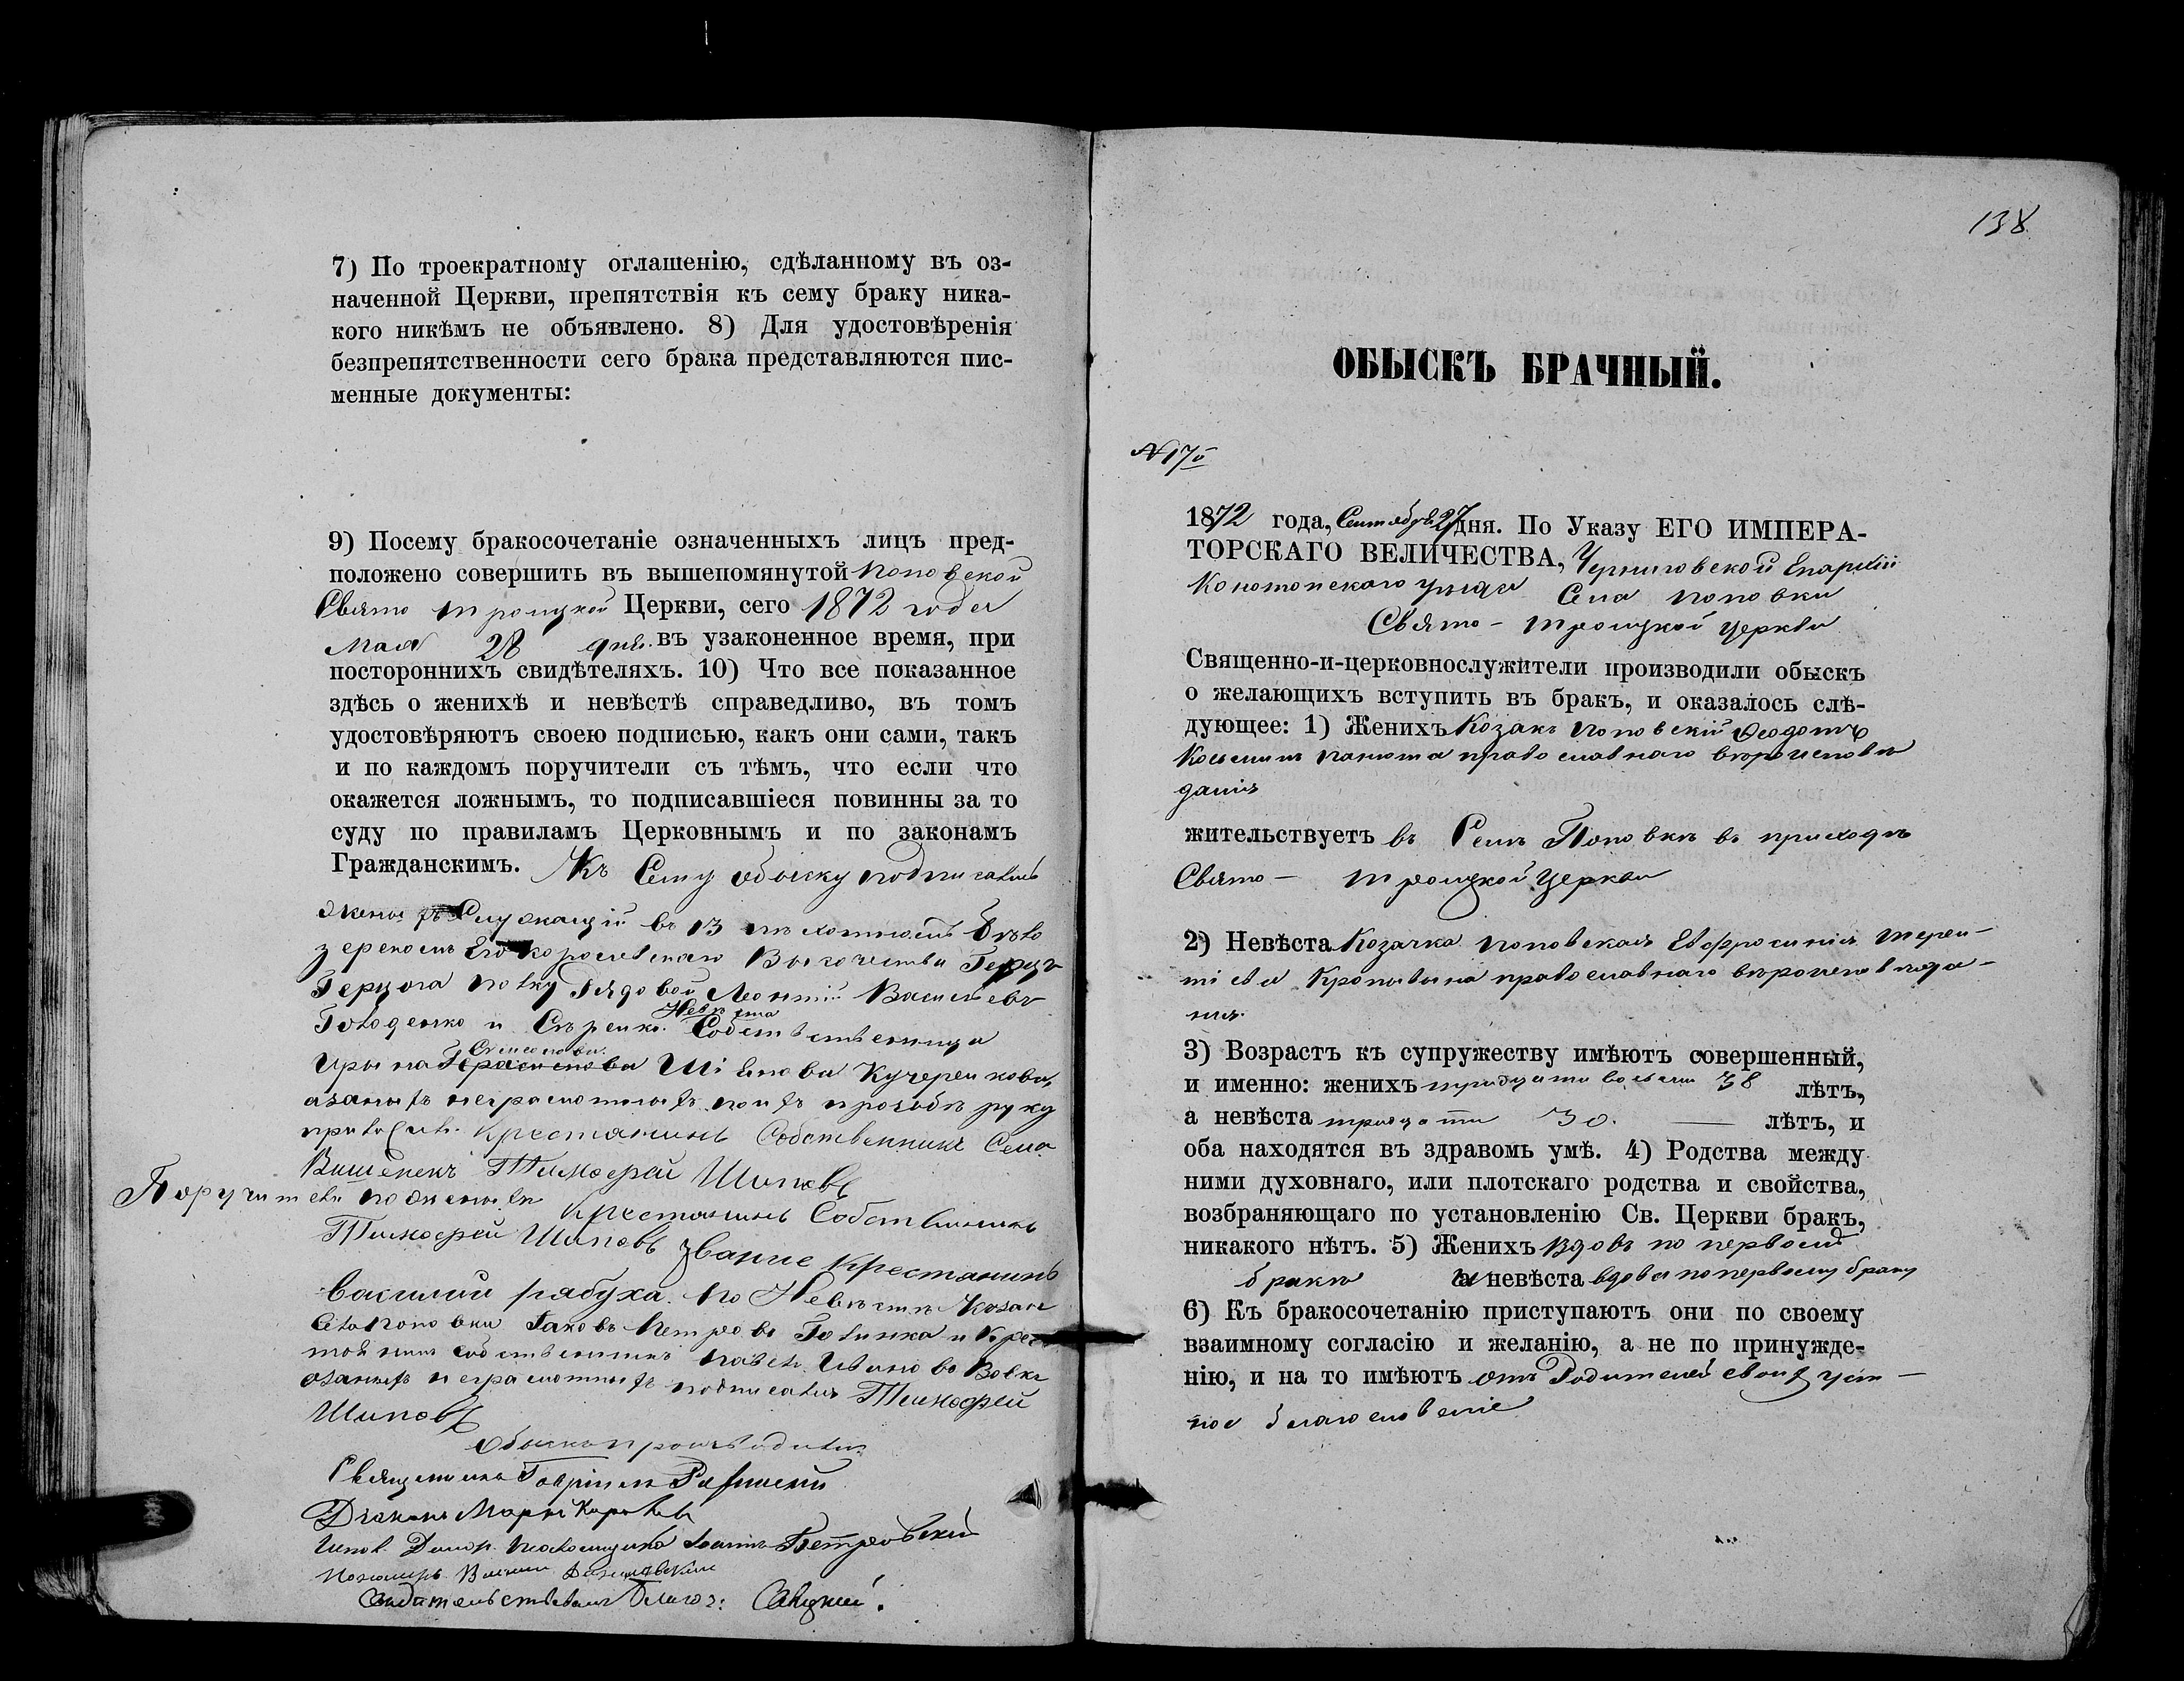 7) По троекратному оглашенію, сдѣланному въ оз-
наченной Церкви, препятствія къ сему браку ника-
кого никѣмъ не объявлено. 8) Для удостовѣренія
безпрепятственности сего брака представляются пис-
менные документы:
9) Посему бракосочетаніе означенныхъ лицъ пред-
положено совершить въ вышепомянутой Поповской
Свято Троицкой Церкви, сего 1872 года
Мая 28 дня. въ узаконенное время, при
постороннихъ свидѣтеляхъ. 10) Что все показанное
здѣсь о женихѣ и невѣстѣ справедливо, въ томъ
удостовѣряютъ своею подписью, какъ они сами, такъ
и по каждомъ поручители съ тѣмъ, что если что
окажется ложнымъ, то подписавшіеся повинны за то
суду по правиламъ Церковнымъ и по законамъ
Гражданскимъ. Къ Сему обыску подписались
женихъ Служащій въ 13
Его королевскаго Высочества
Герцога полку Рядовой Леонтій Васильевъ
и Невѣста Собственница
Ирына Семенова Шіпова Кучеренкова,
азаныхъ неграмотныхъ по ихъ прозьбѣ руку
приложилъ Крестянинъ Собственникъ Села
Вишенекъ Тимофей Шиповъ
Поручители по женихѣ Крестянинъ Собственникъ
Тимофей Шиповъ звание Крестянинъ
Василии рябуха. по Невѣстѣ Козакъ
Села поповки Іаковъ Петровъ и Крес
тянинъ собственникъ Павелъ Ивановъ Вовкъ
азаныхъ неграмотныхъ подписался Тимофей
Шиповъ
Обыскъ производили
Священникъ Гавріилъ
Діаконъ Марко
Петровскій
Свидѣтельствовалъ Благоч: Савицкій.
138
№ 17й
ОБЫСКЪ БРАЧНЫЙ.
1872 года, Сентября 27 дня. По Указу ЕГО ИМПЕРА-
ТОРСКАГО ВЕЛИЧЕСТВА, Черниговской Епархіи
Конотопскаго уѣзда Села поповки
Свято – Троицкой церкви
Священно-и-церковнослужители производили обыскъ
о желающихъ вступить въ бракъ, и оказалось слѣ-
дующее: 1) Женихъ Козакъ поповскій Феодотъ
Косьминъ панюта православнаго вѣроисповѣ
данія
жительствуетъ въ Селѣ Поповкѣ въ приходѣ
Свято – Троицкой Церкви
2) Невѣста Козачка поповская Евфросинія Терен-
тіева Кропывына православнаго вѣроисповѣда-
нія.
3) Возрастъ къ супружеству имѣютъ совершенный,
и именно: женихъ тридцати восьми 38 лѣтъ,
а невѣста тридцати 30. — лѣтъ, и
оба находятся въ здравомъ умѣ. 4) Родства между
ними духовнаго, или плотскаго родства и свойства,
возбраняющаго по установленію Св. Церкви бракъ,
никакого нѣтъ. 5) Женихъ вдовъ по первомъ
бракѣ а невѣста вдова по первому браку
6) Къ бракосочетанію приступаютъ они по своему
взаимному согласію и желанію, а не по принужде-
нію, и на то имѣютъ отъ Родителей своихъ уст –
ное благословеніе